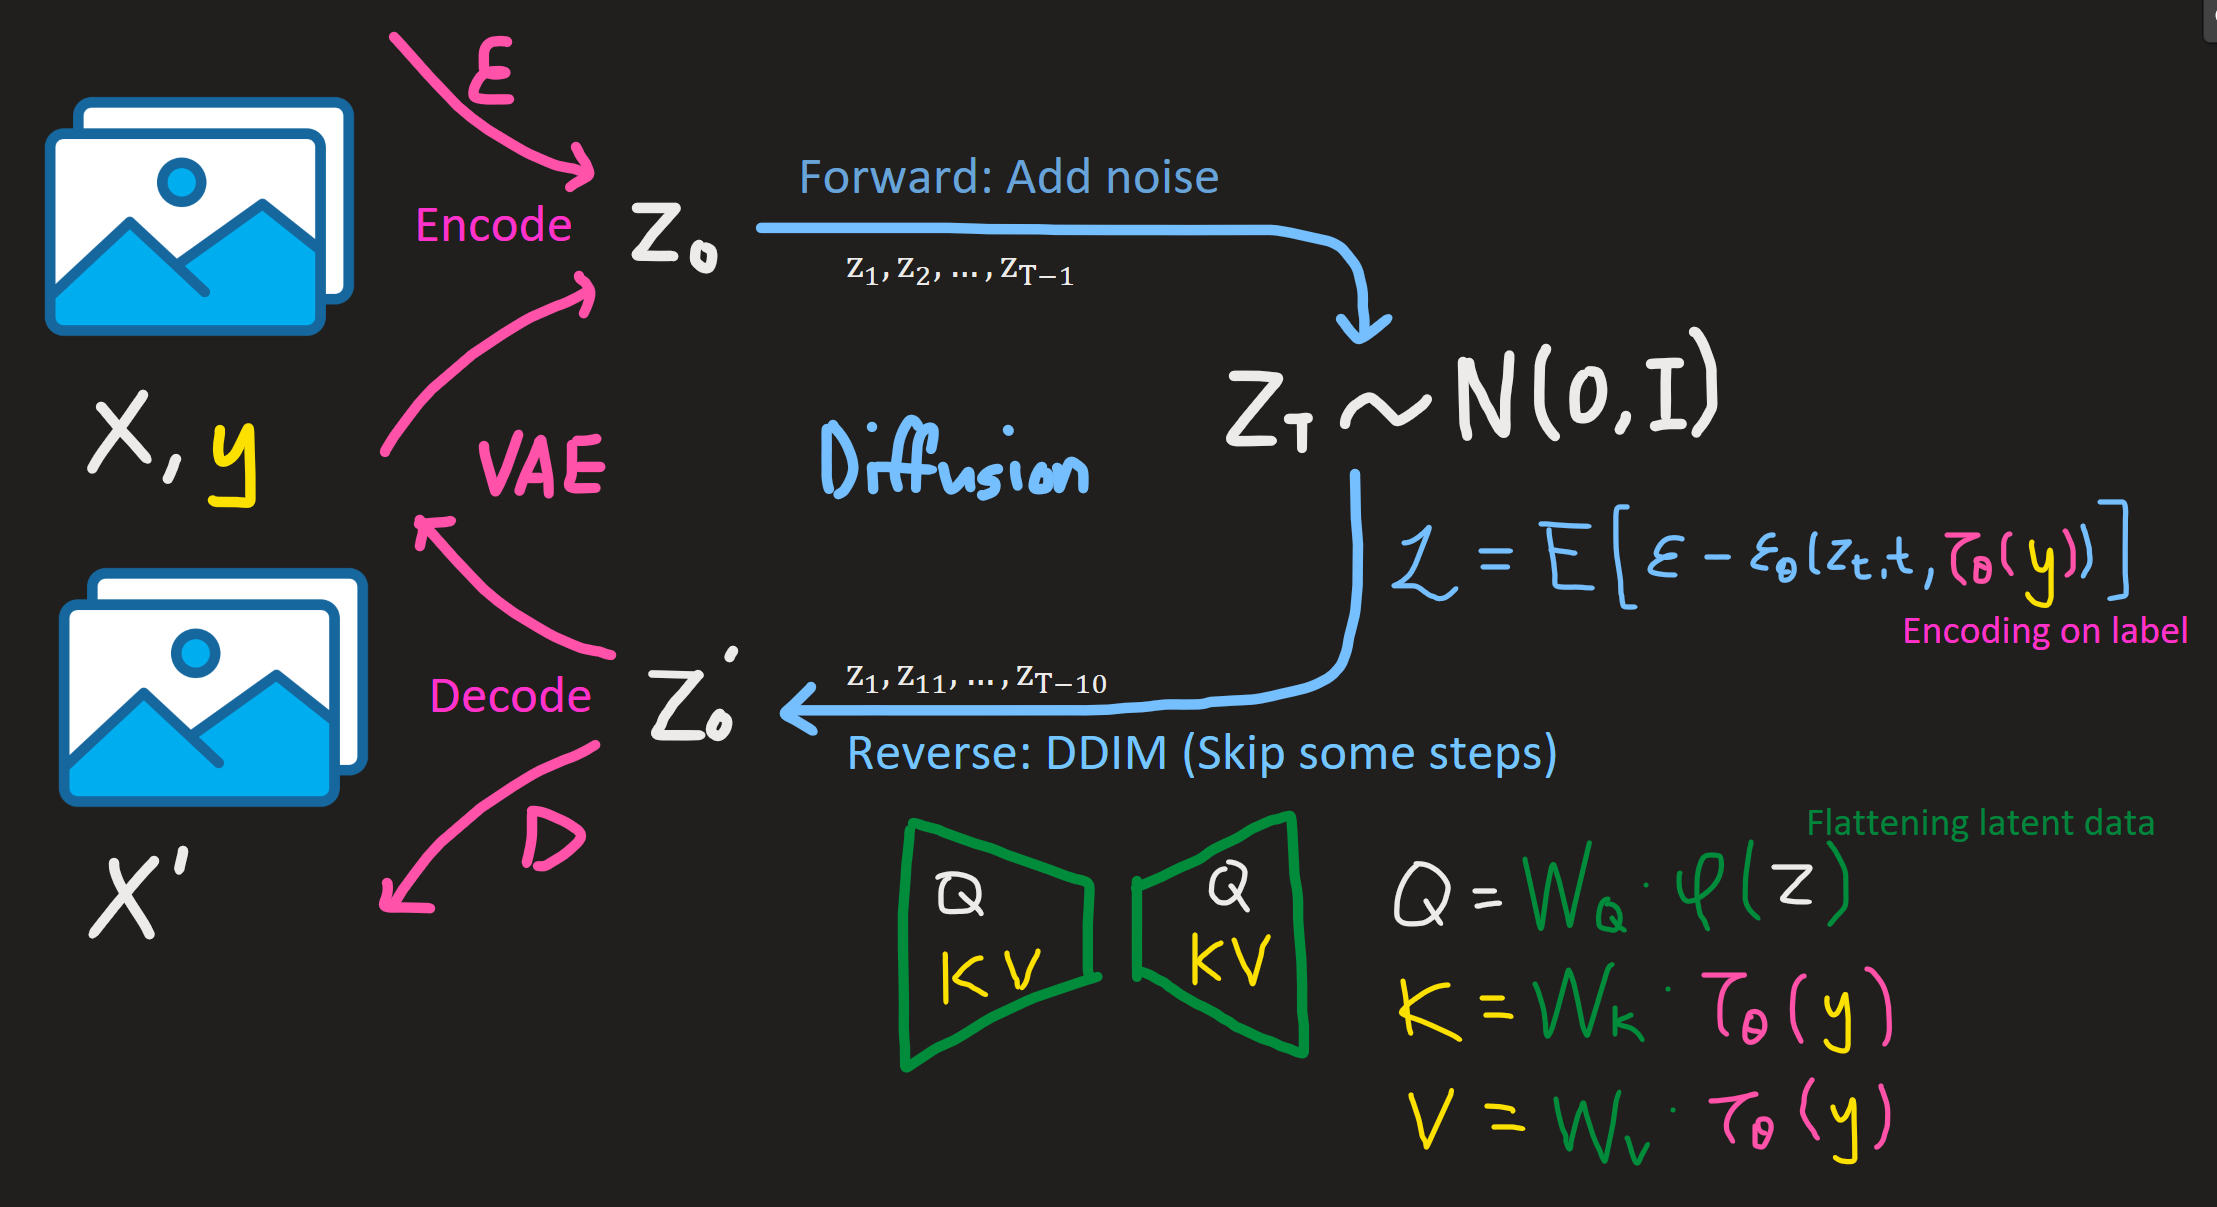 E
Encode
Z₀
Forward: Add noise
z₁, z₂, ..., z_T−1
X, y
VAE
Diffusion
Z_T ~ N(0, I)
ℒ = E[ε − ε_θ(z_t, t, τ_θ(y))]
Encoding on label
Decode
Z₀'
z₁, z₁₁, ..., z_T−10
Reverse: DDIM (Skip some steps)
X'
D
Q
K V
Q
K V
Flattening latent data
Q = W_Q · φ(z)
K = W_K · τ_θ(y)
V = W_V · τ_θ(y)